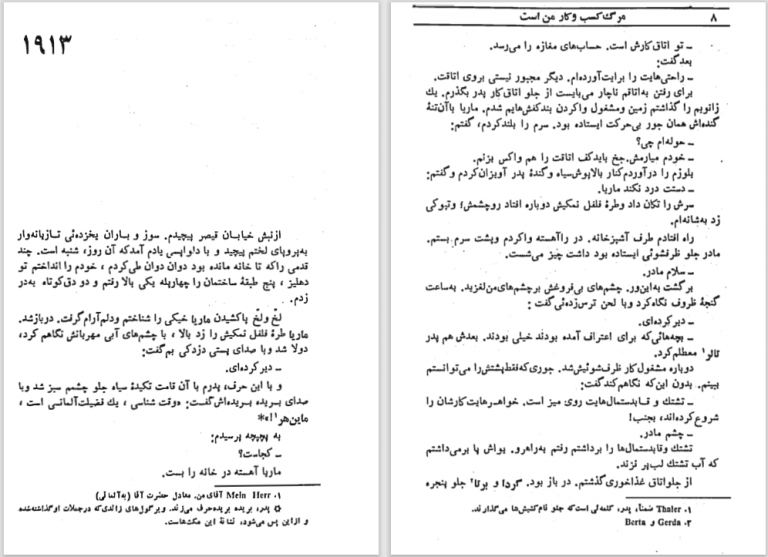 ۸ مرگ کسب و کار من است
ـ تو اتاق کارش است. حساب‌های مغازه را می‌رسد.
بعد گفت:
ـ راحتی‌هایت را برایت آورده‌ام. دیگر مجبور نیستی بروی اتاقت.
برای رفتن به اتاقم ناچار می‌بایست از جلو اتاق کار پدر بگذرم. یک
زانویم را گذاشتم زمین و مشغول واکردن بند کفش‌هایم شدم. ماریا با آن تنهٔ
گنده‌اش همان جور بی‌حرکت ایستاده بود. سرم را بلند کردم، گفتم:
ـ حوله‌ام چی؟
ـ خودم میارمش. جخ باید کف اتاقت را هم واکس بزنم.
بلوزم را درآوردم کنار بالاپوش سیاه و گندهٔ پدر آویزان کردم و گفتم:
ـ دستت درد نکند ماریا.
سرش را تکان داد و طرهٔ فلفل نمکیش دوباره افتاد رو چشمش؛ و تپوکی
زد به شانه‌ام.
راه افتادم طرف آشپزخانه. در را آهسته واکردم و پشت سرم بستم.
مادر جلو ظرفشوئی ایستاده بود داشت چیز می‌شست.
ـ سلام مادر.
برگشت به این‌ور. چشم‌های بی‌فروغش بر چشم‌های من لغزید. به ساعت
گنجهٔ ظروف نگاه کرد و با لحن ترس زده‌ئی گفت:
ـ دیر کرده‌ای.
ـ بچه‌هائی که برای اعتراف آمده بودند خیلی بودند. بعدش هم پدر
تالر۱ معطلم کرد.
دوباره مشغول کار ظرف‌شوئیش شد. جوری که فقط پشتش را می‌توانستم
ببینم. بدون این که نگاهم کند گفت:
ـ تشتک و قابدستمال‌هایت روی میز است. خواهرهایت کارشان را
شروع کرده‌اند، بجنب!
ـ چشم مادر.
تشتک و قابدستمال‌ها را برداشتم رفتم به راهرو. یواش پا برمی‌داشتم
که آب تشتک لب‌پر نزند.
از جلو اتاق غذاخوری گذشتم. در باز بود. گردا و برتا۲ جلو پنجره
۱. Thaler ضمناً، پدر، کلمه‌ئی است که جلو نام کشیش‌ها می‌گذارند.
۲. Gerda و Berta
۱۹۱۳
از نبش خیابان قیصر پیچیدم. سوز و باران یخزده‌ئی تازیانه‌وار
به پروپای لختم پیچید و با دلواپسی یادم آمد که آن روز، شنبه است. چند
قدمی را که تا خانه مانده بود دوان دوان طی کردم، خودم را انداختم تو
دهلیز، پنج طبقهٔ ساختمان را چهارپله یکی بالا رفتم و دو دق کوتاه به در
زدم.
لخ ولخ پاکشیدن ماریا خیکی را شناختم و دلم آرام گرفت. در باز شد.
ماریا طرهٔ فلفل نمکیش را زد بالا، با چشم‌های آبی مهربانش نگاهم کرد،
دولا شد و با صدای پستی دزدکی بم گفت:
ـ دیر کرده‌ای.
و با این حرف، پدرم با آن قامت تکیدهٔ سیاه جلو چشمم سبز شد و با
صدای بریده بریده‌اش گفت: «وقت شناسی، یک فضیلت آلمانی است،
ماین هر۱!»*
به پچپچه پرسیدم:
ـ کجاست؟
ماریا آهسته در خانه را بست.
۱. Mein Herr آقای من. معادل حضرت آقا (به آلمانی)
* پدر، بریده بریده حرف می‌زند. ویرگول‌های زائدی که در جملات او گذاشته شده
و از این پس می‌شود، نشانهٔ این مکث‌هاست.